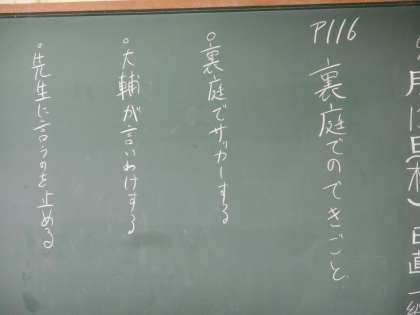 P116 裏庭でのできごと
○裏庭でサッカーする
○大輔が言いわけする
○先生に言うのを止める